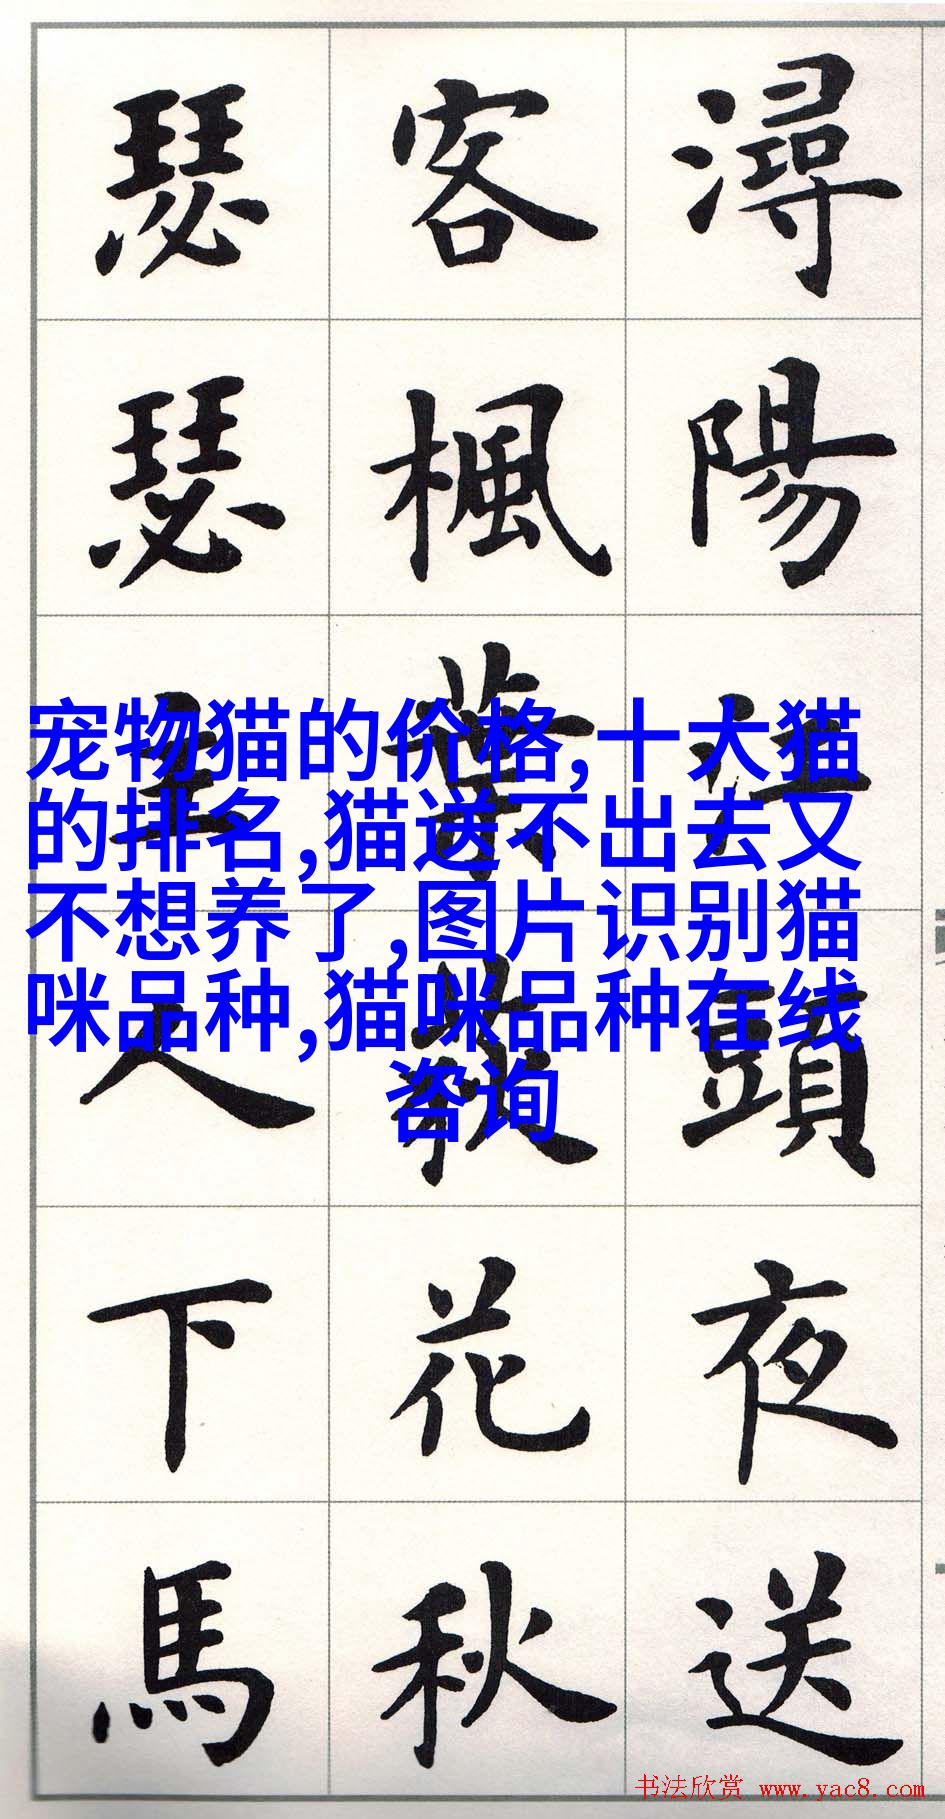 潯陽江頭夜送
客楓葉荻花秋
瑟瑟主人下馬
宠物猫的价格,十大猫
的排名,猫送不出去又
不想养了,图片识别猫
咪品种,猫咪品种在线
咨询
书法欣赏 www.yac8.com